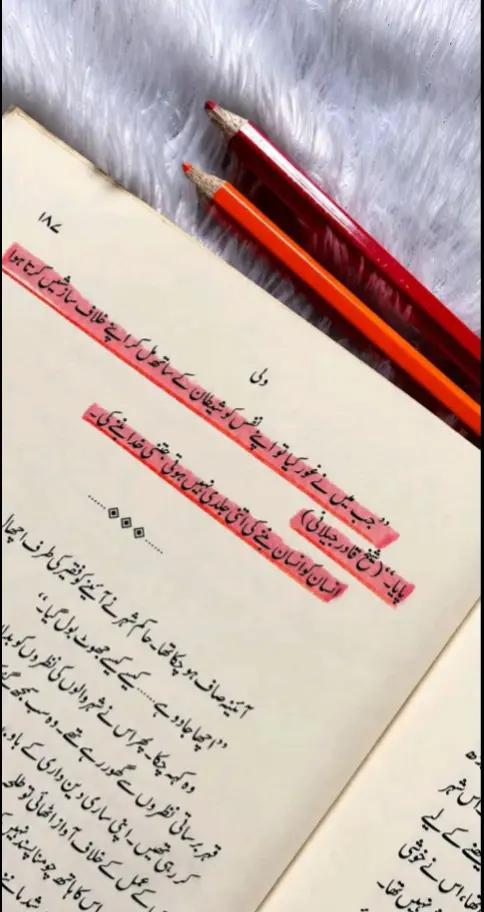 ۱۸۷
ولی
”جب میں نے غور کیا تو اپنے نفس کو شیطان کے ساتھ مل کر اپنے خلاف سازشیں کرتا ہوا
پایا۔“ (شیخ عبدالقادر جیلانی)
انسان کو انسان بننے کی اتنی جلدی نہیں ہوتی جتنی خدا بننے کی۔
آئینہ صاف ہو چکا تھا۔ حاکم شہر نے آئینے کو فقیر کی طرف اچھال
”اچھا جادو ہے...... کیسے کیسے جھوٹ بول گیا۔“
وہ کہہ چکا۔ پھر اس نے شہر والوں کی نظروں کو
قہر برساتی نظروں سے گھور رہے تھے۔ وہ سب سمجھ گئے
کر رہی تھیں۔ اپنی ساری دین داری کے باوجود
کے عمل کے خلاف آواز اٹھائی تو
اس کا ہاتھ چومنا پسند نہیں
اس شہر
کے لیے
تھا، اس نے خوشی
نہیں تھا۔